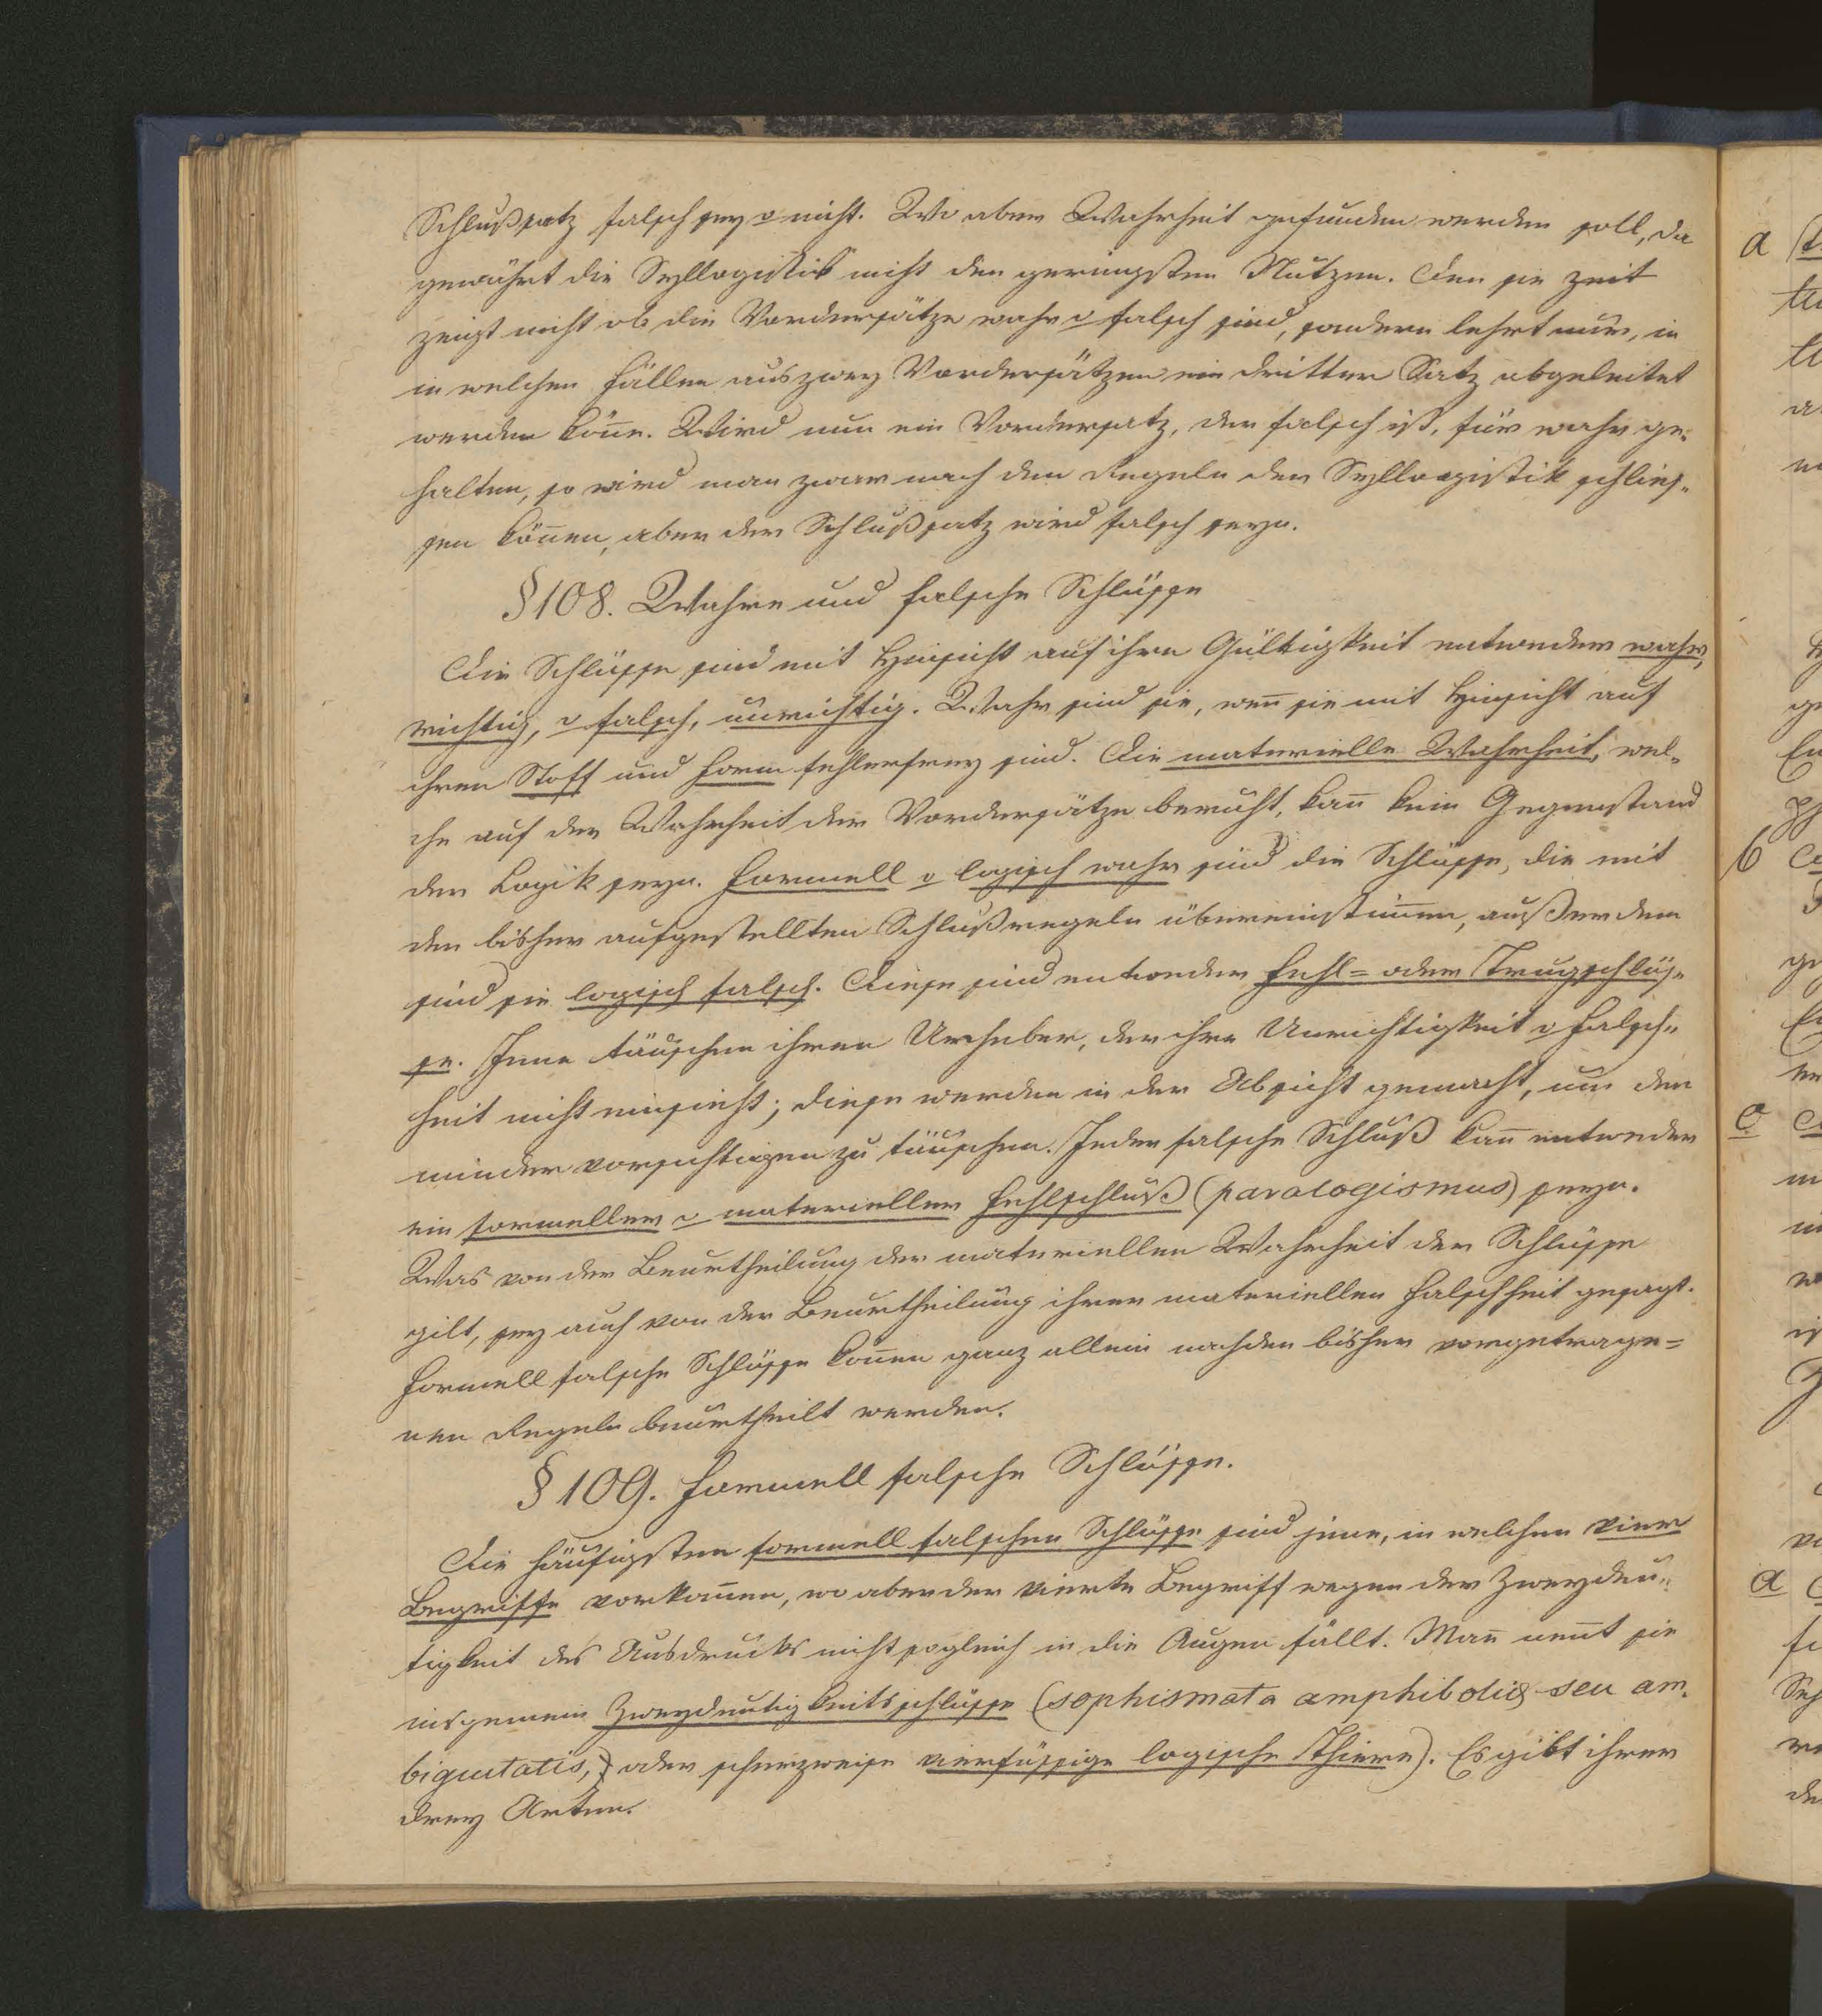 Schlußsatz falsch sey o nicht. Wo aber Wahrheit gefunden werden soll, da
gewährt die Syllogistik nicht den geringsten Nutzen. Den sie zeit
zeigt nicht ob die Vordersätze wahr o falsch sind, sondern lehrt nur, in
in welchen Fällen aus zwey Vordersätzen ein dritter Satz abgeleitet
werden könne. Wird nun ein Vordersatz, der falsch ist, für wahr ge-
halten, so wird man zwar nach den Regeln der Syllogistik schlies-
sen können, aber der Schlußsatz wird falsch seyn.
§ 108. Wahre und falsche Schlüsse
Die Schlüsse sind mit Hinsicht auf ihre Gültigkeit entweder wahr,
richtig, o falsch, unrichtig. Wahr sind sie, wen̄ sie mit Hinsicht auf
ihren Stoff und Form fehlerfrey sind. Die materielle Wahrheit, wel-
che auf der Wahrheit der Vordersätze beruht, kan̄ kein Gegenstand
der Logik seyn. Formell o logisch wahr sind die Schlüsse, die mit
den bisher aufgestellten Schlußregeln übereinstim̄en, außerdem
sind sie logisch falsch. Diese sind entweder Fehl= oder Trugschlüs-
se. Jene täuschen ihren Urheber, der ihre Unrichtigkeit o Falsch-
heit nicht einsieht; diese werden in der Absicht gemacht, um den
minder vorsichtigen zu täuschen. Jeder falsche Schluß kan̄ entweder
ein formeller o materieller Fehlschluß (paralogismus) seyn.
Was von der Beurtheilung der materiellen Wahrheit der Schlüsse
gilt, sey auch von der Beurtheilung ihrer materiellen Falschheit gesagt.
Formell falsche Schlüsse kön̄en ganz allein nach den bisher vorgetrage=
nen Regeln beurtheilt werden.
§ 109. Formell falsche Schlüsse.
Die häufigsten formell falschen Schlüsse sind jene, in welchen vier
Begriffe vorkom̄en, wo aber der vierte Begriff wegen der Zweydeu-
tigkeit des Ausdrucks nicht sogleich in die Augen fällt. Man̄ nen̄t sie
insgemein Zweydeutigkeitsschlüsse (sophismata amphiboliae seu am-
biguitatis, oder scherzweise vierfüssige logische Thiere). Es gibt ihrer
drey Arten.
a
b
c
d